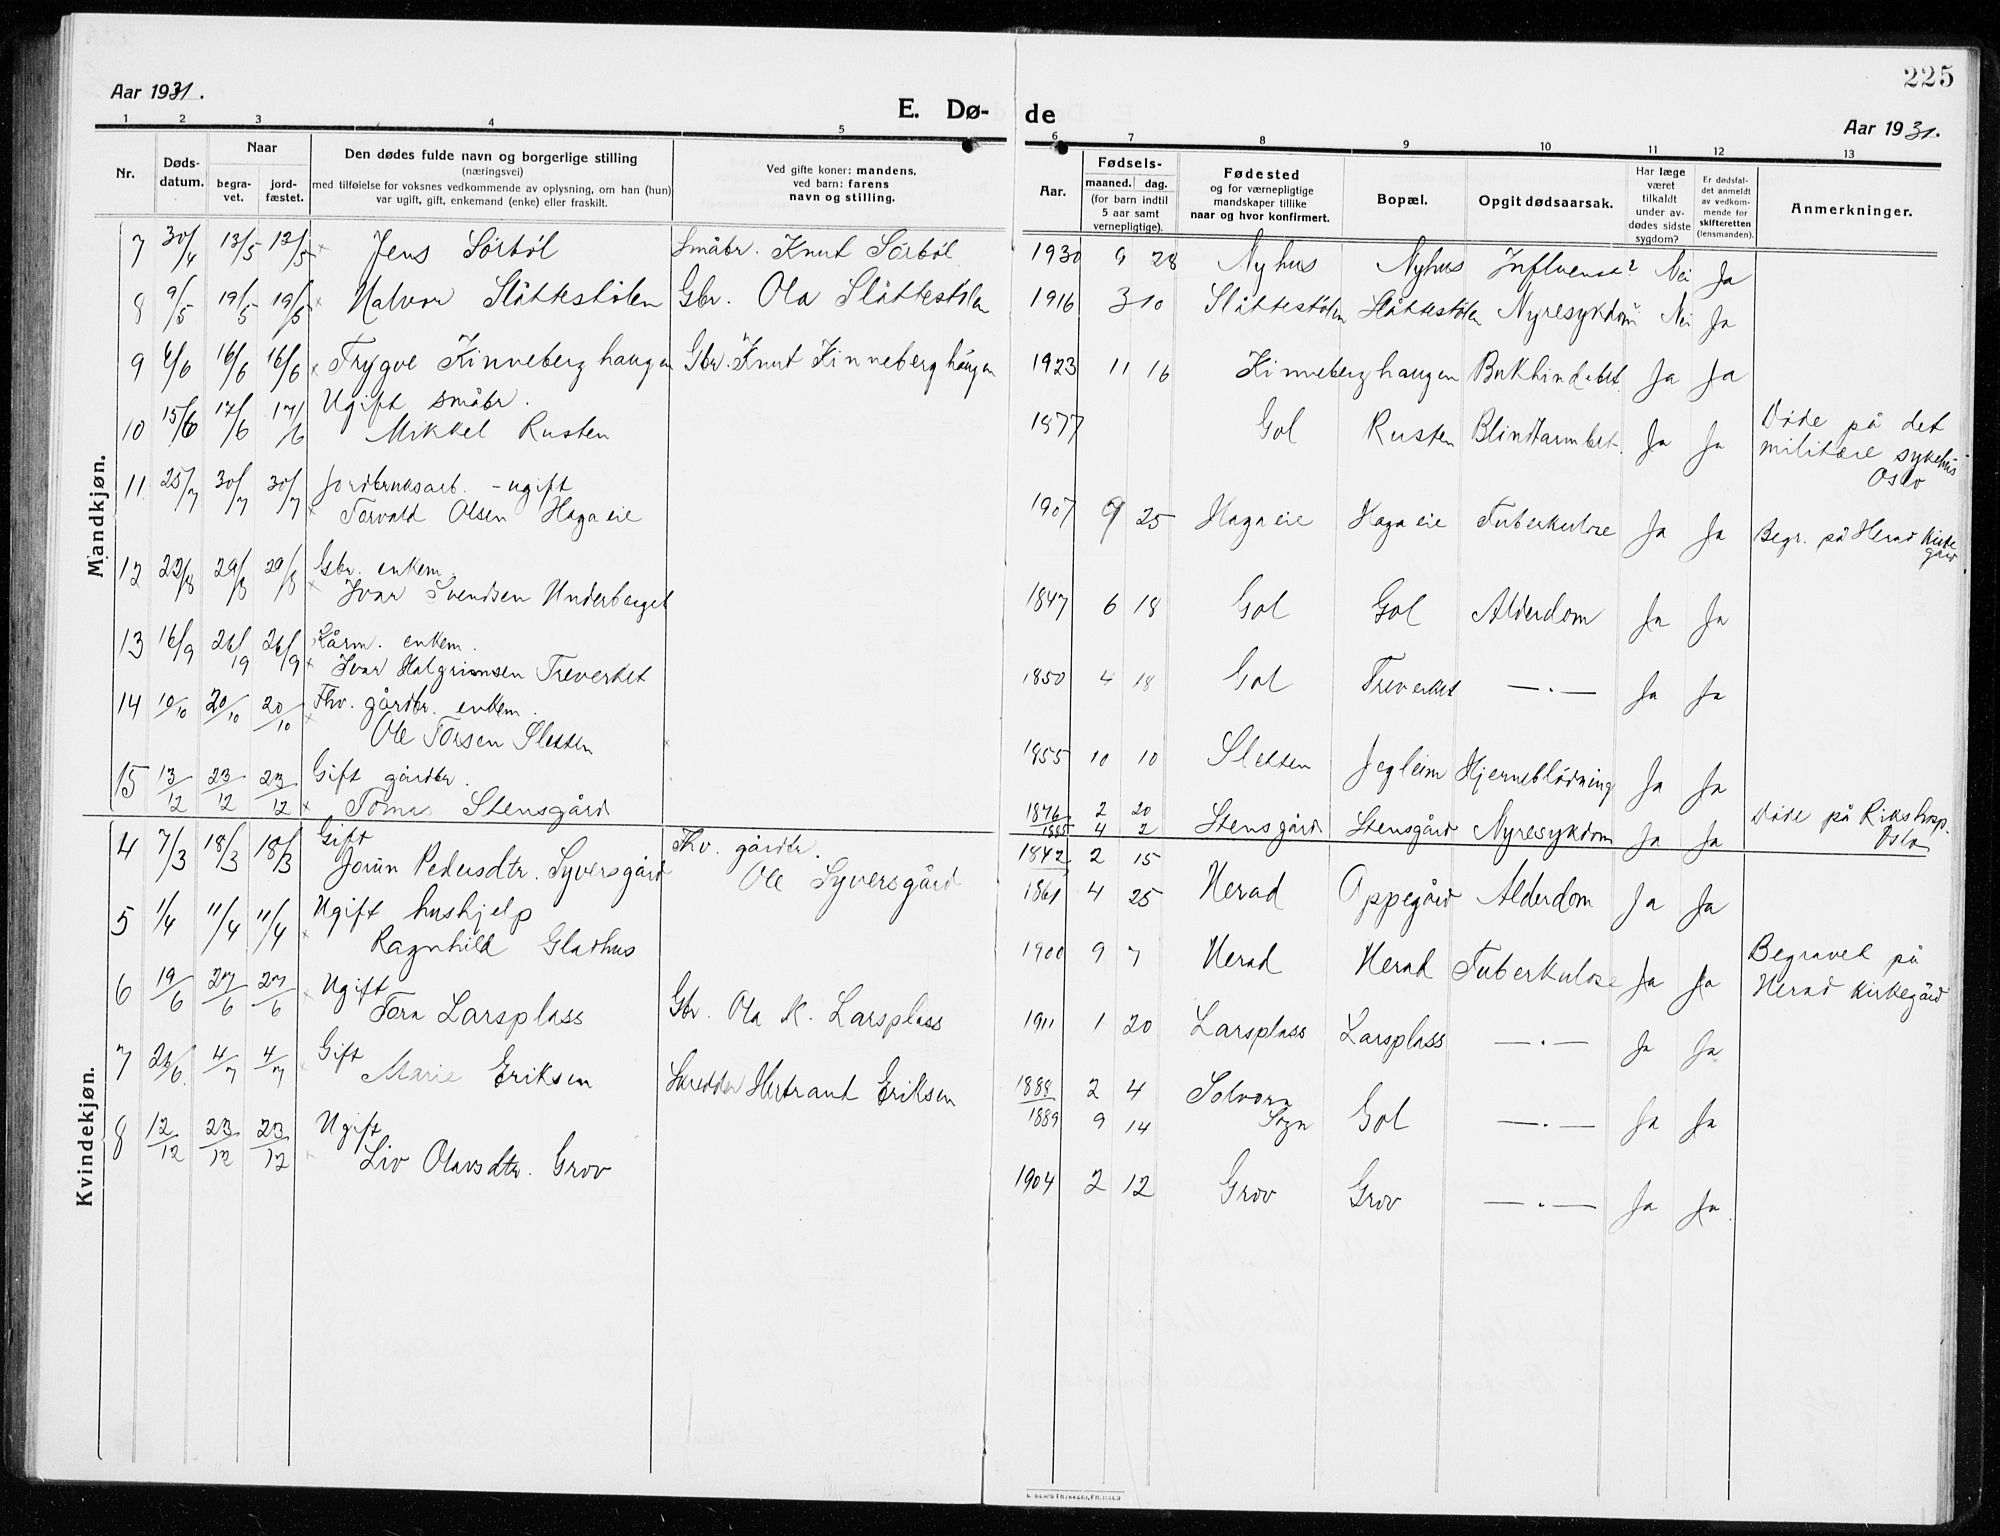 225
Aar 1931.
E. Dø- de
Aar 1931.
1 2 3 4 5 6 7 8 9 10 11 12 13
Nr.
Døds-
datum.
Naar
begra-
vet.
jord-
fæstet.
Den dødes fulde navn og borgerlige stilling
(næringsvei)
med tilføielse for voksnes vedkommende av oplysning, om han (hun)
var ugift, gift, enkemand (enke) eller fraskilt.
Ved gifte koner: mandens,
ved barn: farens
navn og stilling.
Aar.
Fødsels-
maaned. dag.
(for barn indtil
5 aar samt
vernepligtige).
Fødested
og for værnepligtige
mandskaper tillike
naar og hvor konfirmert.
Bopæl.
Opgit dødsaarsak.
Har læge
været
tilkaldt
under av-
dødes sidste
sygdom?
Er dødsfal-
det anmeldt
av vedkom-
mende for
skifteretten
(lensmanden).
Anmerkninger.
Mandkjøn.
7 30/4 13/5 13/5 × Jens Sørbøl Småbr. Knut Sørbøl 1930 9 28 Nyhus Nyhus Influensa? Nei Ja
8 9/5 19/5 19/5 × Halvor Slåttestølen Gbr. Ola Slåttestølen 1916 3 10 Slåttestølen Slåttestølen Nyresykdom Nei Ja
9 6/6 16/6 16/6 × Trygve Kinneberghaugen Gbr. Knut Kinneberghaugen 1923 11 16 Kinneberghaugen Bukhindebet. Ja Ja
10 15/6 17/6 17/6 Ugift småbr.
Mikkel Rusten 1877 Gol Rusten Blindtarmbet. Ja Ja Døde på det
militære sykehus
Oslo
11 25/7 30/7 30/7 Jordbruksarb. - ugift
× Torvald Olsen Hagaeie 1907 9 25 Hagaeie Hagaeie Tuberkulose Ja Ja Begr. på Herad kirke
gård
12 22/8 29/8 29/8 Gbr. enkem.
× Ivar Svendsen Underberget 1847 6 18 Gol Gol Alderdom Ja Ja
13 16/9 26/9 26/9 Kårm. enkem.
× Ivar Halgrimsen Treverket 1850 4 18 Gol Treverket — . — Ja Ja
14 10/10 20/10 20/10 Fhv. gårdbr. enkem.
× Ole Torsen Sletten 1855 10 10 Sletten Jegleim Hjerneblødning Ja Ja
15 13/12 23/12 23/12 Gift gårdbr.
× Tomas Stensgård 1876 2 20 Stensgård Stensgård Nyresykdom Ja Ja Døde på Rikshosp.
Oslo
1885 4 2
Kvindekjøn.
4 7/3 18/3 18/3 Gift
Jorun Pedersdtr. Syversgård Fhv. gårdbr.
Ole Syversgård 1842 2 15
1861 4 25 Herad Oppegård Alderdom Ja Ja
5 1/4 11/4 11/4 Ugift hushjelp
× Ragnhild Gladhus 1900 9 7 Herad Herad Tuberkulose Ja Ja Begravet på
Herad kirkegård
6 19/6 27/6 27/6 Ugift
Tora Larsplass Gbr. Ola K. Larsplass 1911 1 20 Larsplass Larsplass — . — Ja Ja
7 26/6 4/7 4/7 Gift
Marie Eriksen Skredder Eriksen 1888 2 4 Solvorn
Sogn Gol — . — Ja Ja
1889 9 14
8 12/12 23/12 23/12 Ugift
Liv Olavsdtr. Grov 1904 2 12 Grov Grov — . — Ja Ja